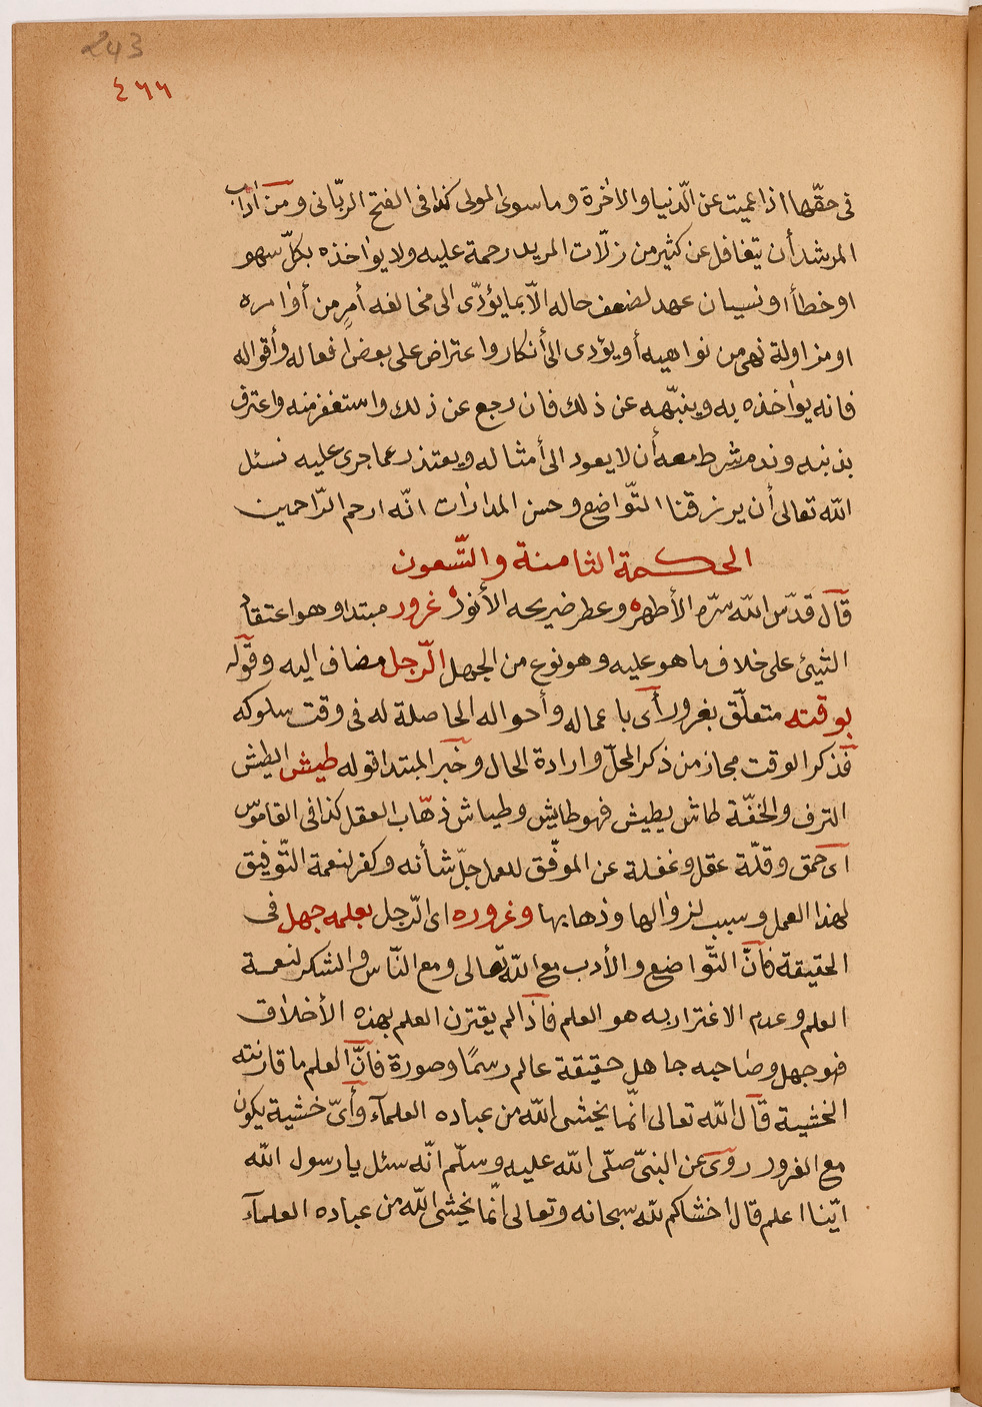 243
٤٦٦
في حقّها اذا عميت عن الدّنيا والاخرة وما سوى المولى كذا فى الفتح الربّانى ومن اداب
المرشد أن يتغافل عن كثير من زلّات المريد رحمة عليه ولا يواخذه بكلّ سهو
او خطأ او نسيان عهد لضعف حاله الاّ بما يؤدّى الى مخالفه أمرٍ من أوامره
او مزاولة نهى من نواهيه أو يؤدى الى أنكار واعتراض على بعض افعاله وأقواله
فانه يواخذه به وينبّهه عن ذلك فان رجع عن ذلك واستغفر منه واعترف
بذنبه وندم شرط معه أن لا يعود الى أمثاله ويعتذر عما جرى عليه نسئل
الله تعالى أن يرزقنا التّواضع وحسن المدارات انّه ارحم الرّاحمين
الحكمة الثامنة والتّسعون
قال قدّس الله سرّه الأطهره وعطر ضريحه الأنورْ غرور مبتدا وهو اعتقاد
الشيئ على خلاف ما هو عليه وهو نوع من الجهل الرّجل مضاف اليه وقوله
بوقته متعلّق بغرور أى باعماله وأحواله الحاصلة له فى وقت سلوكه
فذكر الوقت مجاز من ذكر المحلّ وارادة الحال وخبر المبتدا قوله طيش الطيش
الترف والخفّة طاش يطيش فهو طايش وطياش ذهّاب العقل كذا فى القاموس
اى حمق وقلّة عقل وغفلة عن الموفّق للعمل جلّ شأنه وكفر لنعمة التّوفيق
لهذا العمل وسبب لزوالها وذهابها وغروره اى الرّجل بعلمه جهل فى
الحقيقة فانّ التّواضع والأدب مع الله تعالى ومع النّاس والشكر لنعمة
العلم وعدم الاغترار به هو العلم فاذا لم يقترن العلم بهذه الأخلاق
فهو جهل وصاحبه جاهل حقيقة عالم رسمًا وصورة فانّ العلم ما قارنته
الخشية قال الله تعالى انّما يخشى الله من عباده العلمآء وأىّ خشية يكون
مع الغرور روى عن النبىّ صلّى الله عليه وسلّم انّه سئل يا رسول الله
ايّنا اعلم قال اخشاكم لله سبحانه وتعالى انّما يخشى الله من عباده العلمآء